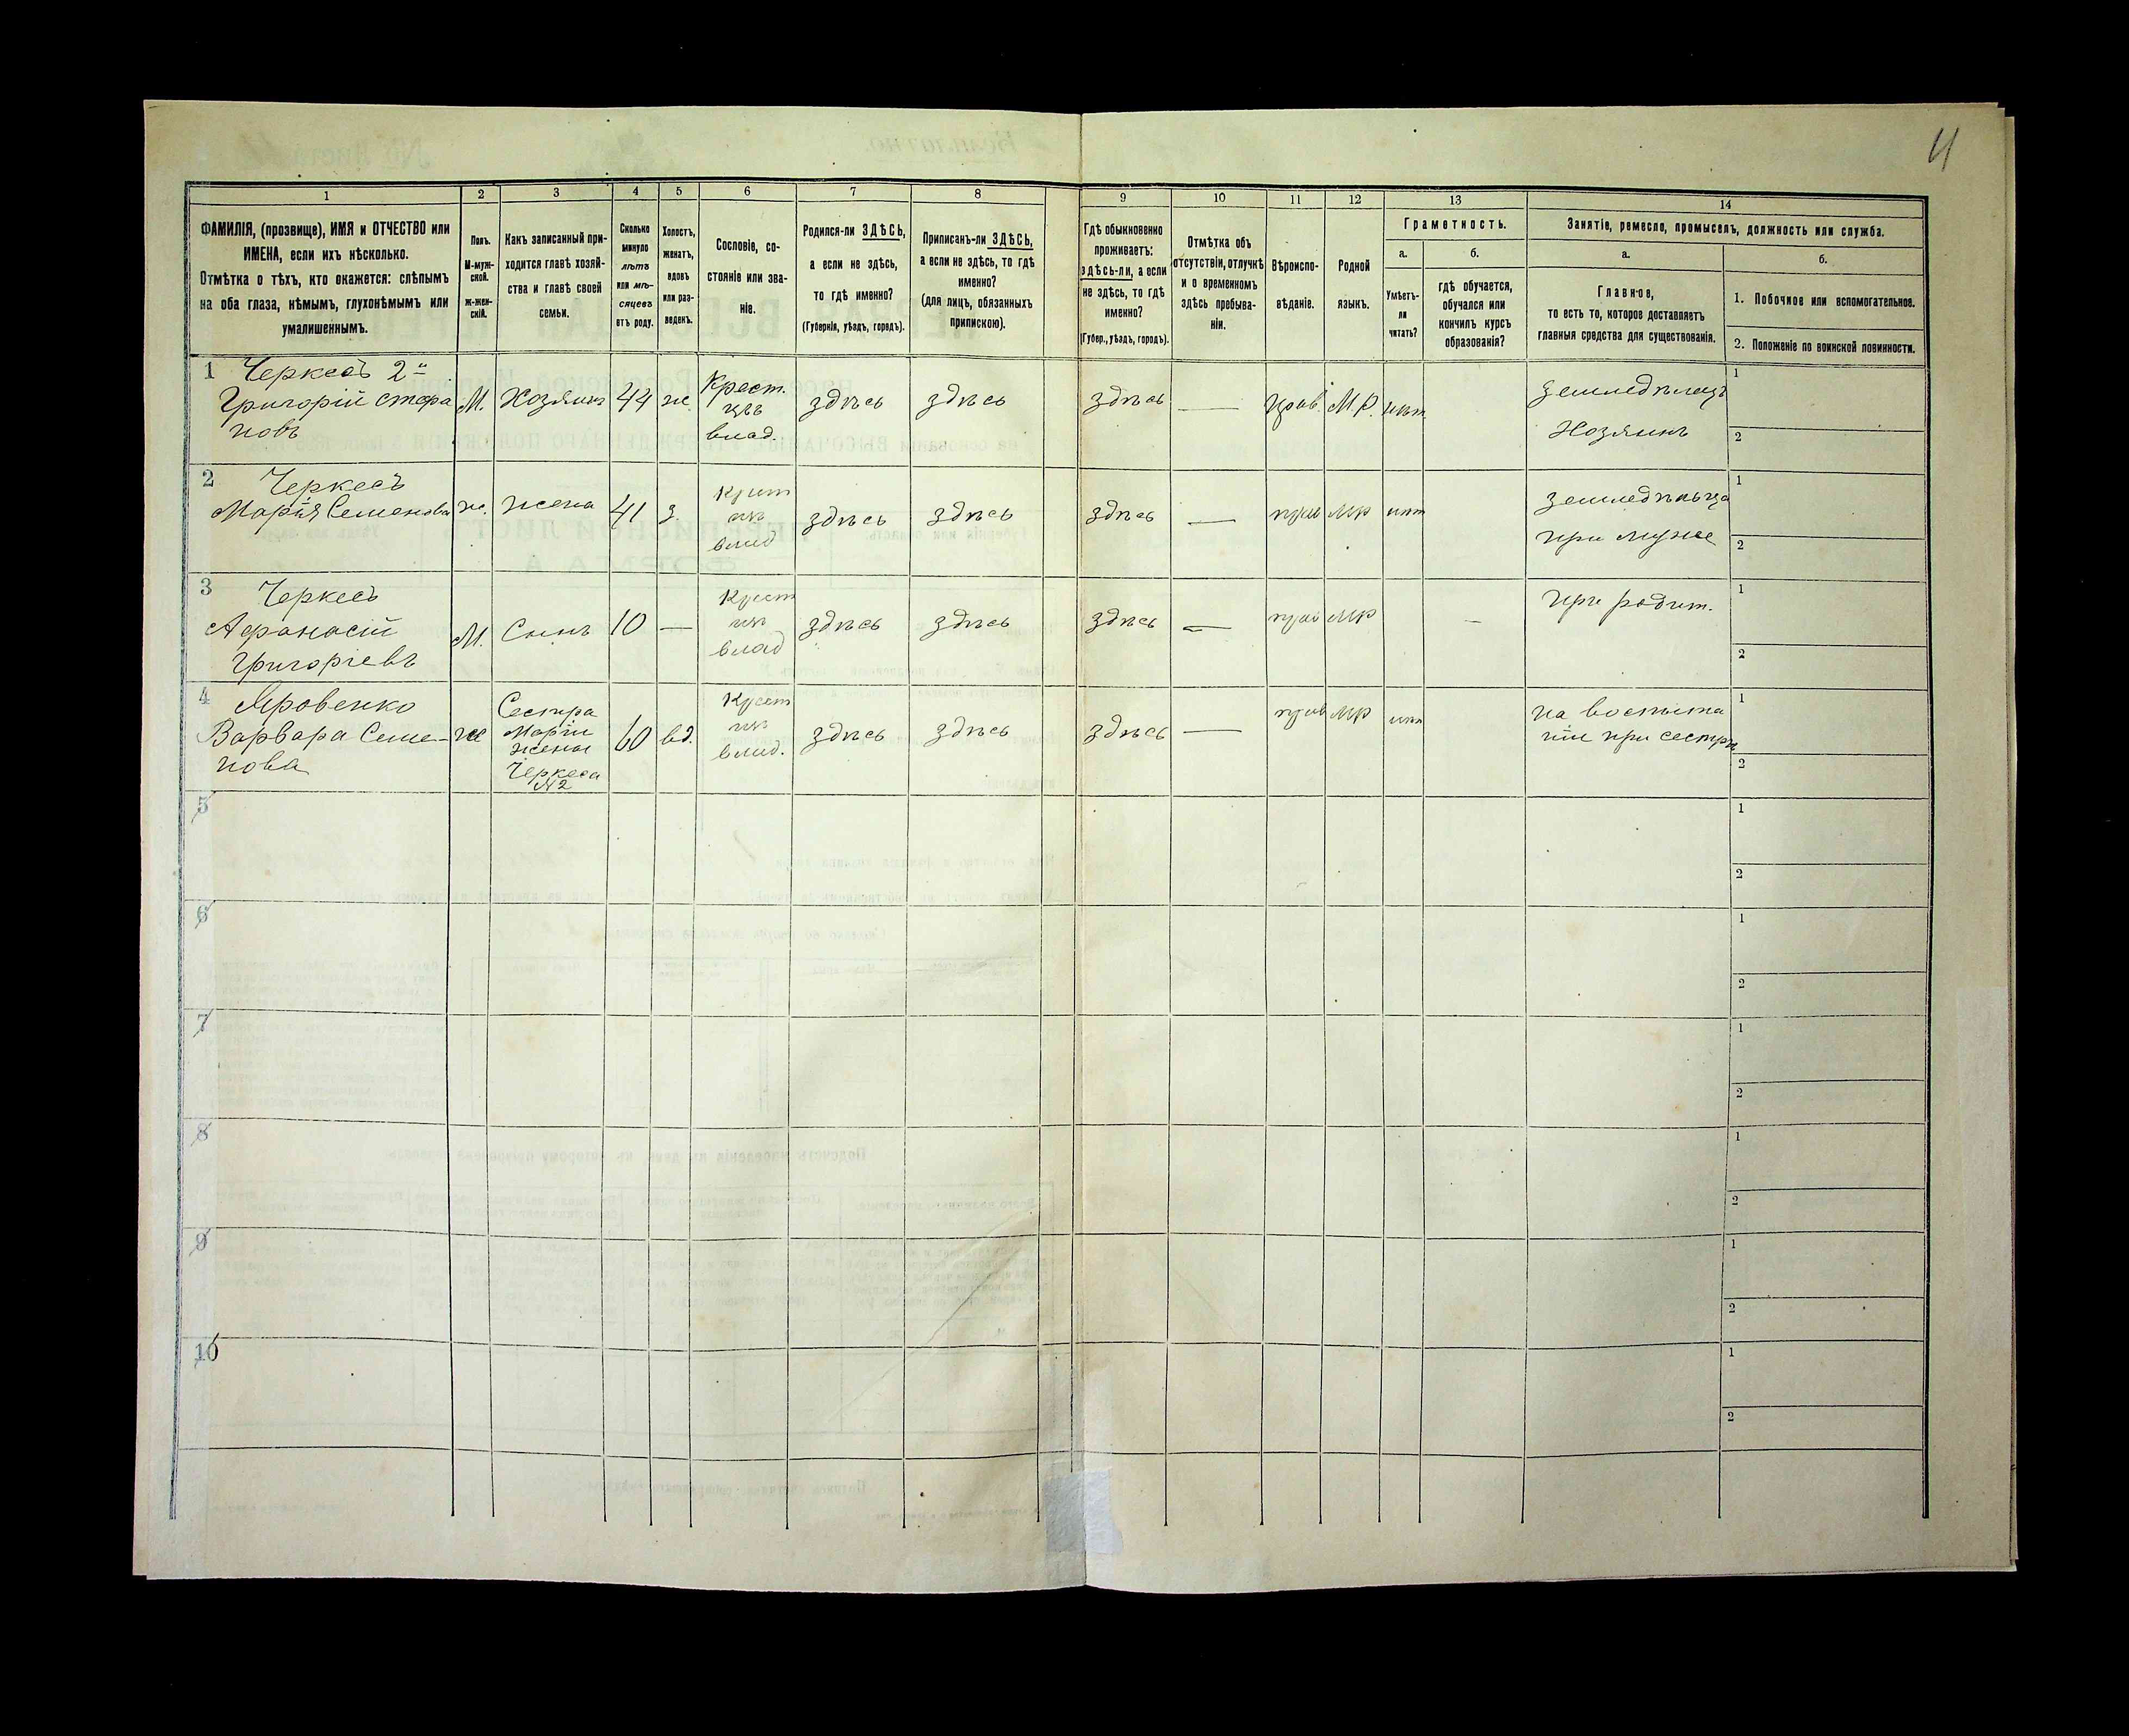 4
1 2 3 4 5 6 7 8 9 10 11 12 13 14
ФАМИЛІЯ, (прозвище), ИМЯ и ОТЧЕСТВО или
ИМЕНА, если ихъ нѣсколько.
Отмѣтка о тѣхъ, кто окажется: слѣпымъ
на оба глаза, нѣмымъ, глухонѣмымъ или
умалишеннымъ.
Полъ.
М-муж-
ской.
ж-жен-
скій.
Какъ записанный при-
ходится главѣ хозяй-
ства и главѣ своей
семьи.
Сколько
минуло
лѣтъ
или мѣ-
сяцевъ
отъ роду.
Холостъ,
женатъ,
вдовъ
или раз-
веденъ.
Сословіе, со-
стояніе или зва-
ніе.
Родился-ли ЗДѢСЬ,
а если не здѣсь,
то гдѣ именно?
(Губернія, уѣздъ, городъ).
Приписанъ-ли ЗДѢСЬ,
а если не здѣсь, то гдѣ
именно?
(для лицъ, обязанныхъ
припискою).
Гдѣ обыкновенно
проживаетъ:
здѣсь-ли, а если
не здѣсь, то гдѣ
именно?
(Губер., уѣздъ, городъ).
Отмѣтка объ
отсутствіи, отлучкѣ
и о временномъ
здѣсь пребыва-
ніи.
Вѣроиспо-
вѣданіе.
Родной
языкъ.
Грамотность.
а.
Умѣетъ-
ли
читать?
б.
гдѣ обучается,
обучался или
кончилъ курсъ
образованія?
Занятіе, ремесло, промыселъ, должность или служба.
а.
Главное,
то есть то, которое доставляетъ
главныя средства для существованія.
б.
1. Побочное или вспомогательное.
2. Положеніе по воинской повинности.
1 Черкесъ 2й
Григорій Стефа
новъ
М. Хозяинъ 44 ж
Крест.
изъ
влад.
здѣсь здѣсь здѣсь — прав. М.Р. нѣт
земледѣлецъ
Хозяинъ
1
2
2 Черкесъ
Марія Семенова
ж. жена 41 з
Крест
изъ
влад
здѣсь здѣсь здѣсь — прав мр нѣт
земледѣльца
при мужѣ
1
2
3 Черкесъ
Афанасій
Григоріевъ
М. Сынъ 10 —
Крест
изъ
влад
здѣсь здѣсь здѣсь — прав мр —
при родит.
1
2
4 Яровенко
Варвара Семе-
нова
ж
Сестра
Маріи
жены
Черкеса
N2
60 вд.
Крест
изъ
влад.
здѣсь здѣсь здѣсь — прав мр нѣт
на воспита
ніи при сестрѣ
1
2
5
1
2
6
1
2
7
1
2
8
1
2
9
1
2
10
1
2